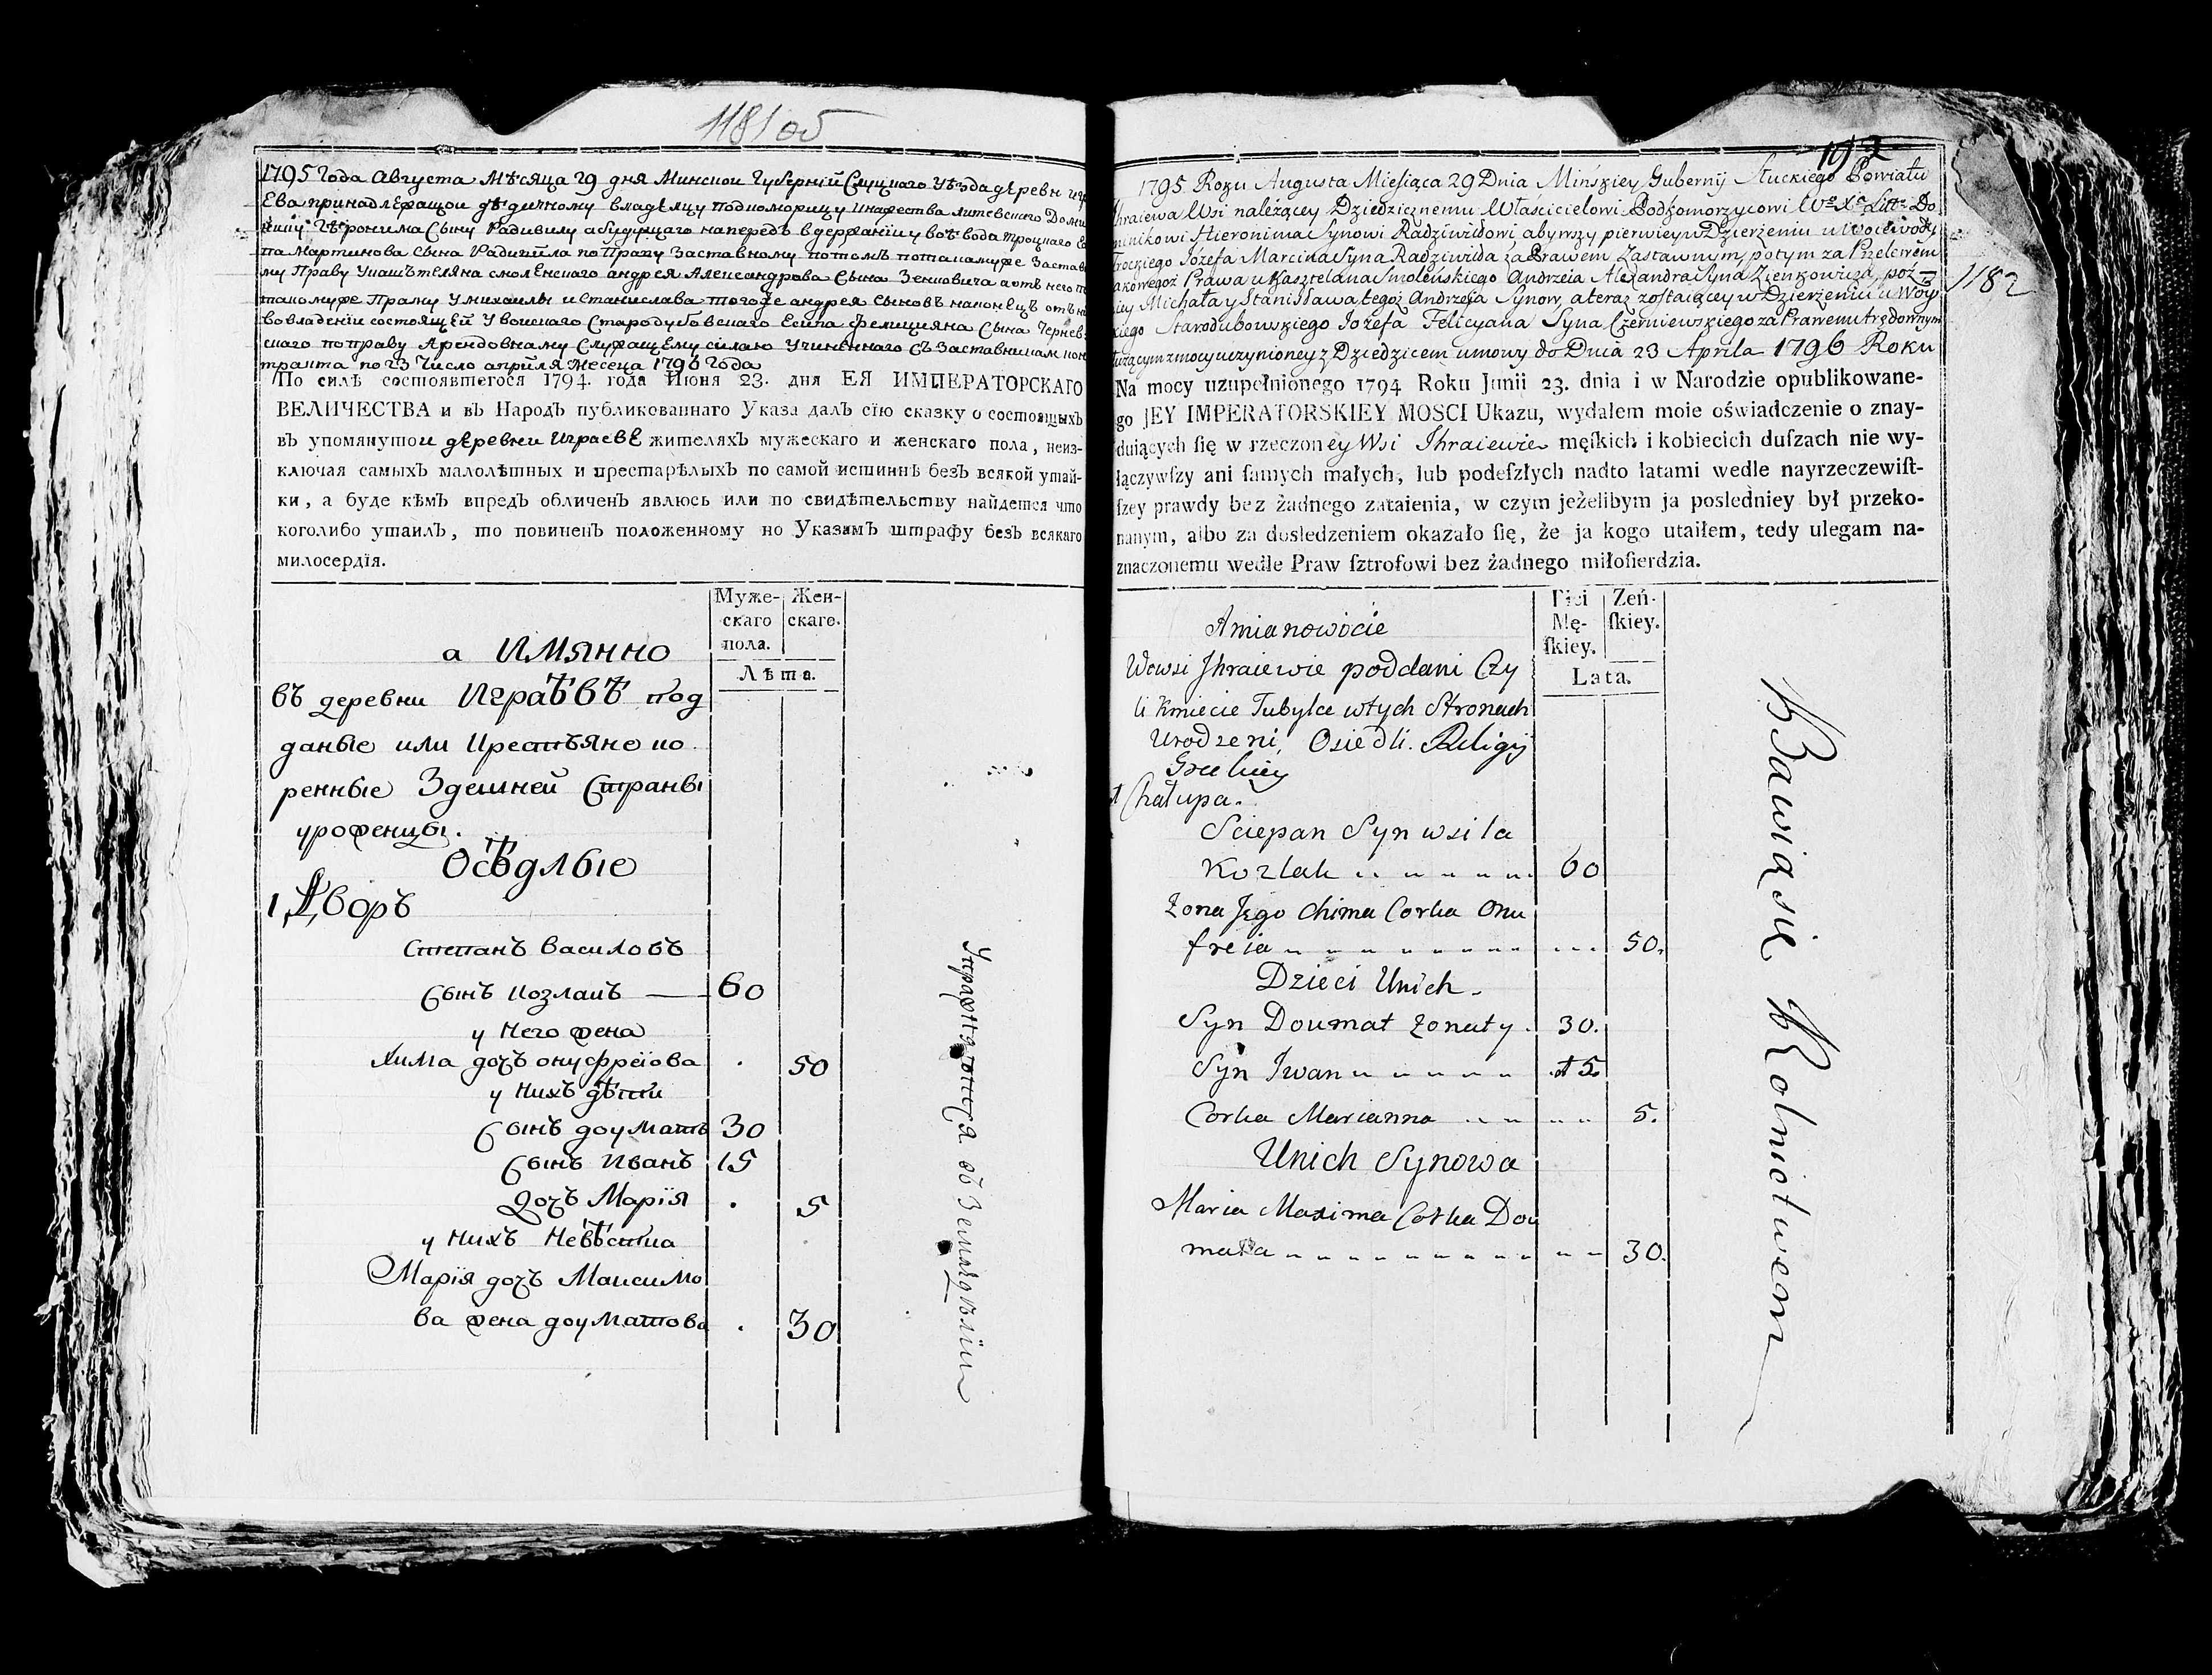 1181 об
1795 Года Августа Мѣсяца 29 дня Минской Губерніи Слуцкаго Уѣзда деревни Игра
Ева принадлежащой дѣдичному владелцу подкоморицу Княжества литевского Доми
нику Геронима Сыну Радивилу а будущаго напередъ вдержаніи у воеводы троцкаго
Мартинова Сына Радивила по Праву Заставному потомъ потакомуже Застав
му Праву Укаштеляна смоленскаго андрея Александрова Сына Зенковича а отъ него по
такомуже Праву Умихаила и Станислава тогоже андрея Сыновъ наконецъ
во владеніи состоящей Увойскаго Стародубовскаго Есипа Фелицияна Сына Чернев
скаго по праву Арендовному Служащему силою Учиненнаго Съ Заставникам кон
тракта по 23 Число априля месеца 1796 года
По силѣ состоявшегося 1794. года Июня 23. дня ЕЯ ИМПЕРАТОРСКАГО
ВЕЛИЧЕСТВА и въ Народъ публикованнаго Указа далъ сїю сказку о состоящыхъ
въ упомянутои деревни Играеве жителяхъ мужескаго и женскаго пола, неиз-
ключая самыхъ малолѣтных и престарѣлыхъ по самой истиннѣ безъ всякой утай-
ки, а буде кѣмъ впредъ обличенъ явлюсь или по свидѣтельству найдется что
коголибо утаилъ, то повиненъ положенному по Указамъ штрафу безъ всякаго
милосердїя.
Муже-
скаго
пола.
Жен-
скаго.
Лѣта.
а Имянно
въ деревни Играѣвѣ под
даные или Крестьяне ко
ренные Здешней Страны
уроженцы.
Осѣдлые
1 Дворъ
Степанъ Василовъ
Сынъ Козлакъ — 60
у него жена
Хима дочъ онуфреїова . 50
у нихъ дѣти
Сынъ доуматъ 30
Сынъ Иванъ 15
Дочъ Марїя . 5
у нихъ невѣстка
Марїя дочъ Максимо
ва жена доуматова . 30
Упражняются въ Земледѣліи
192
1182
1795 Roku Augusta Miesiąca 29 Dnia Minskiey Gubernij Słuckiego Powiatu
Ihraiewa Wsi należącey Dziedzicznemu Właścicielowi Podkomorzycowi Wo Xa Litto Do
minikowi Hieronima Synowi Radziwiłłowi, abywszy pierwiey w Dzierżeniu u Woiewody
Trockiego Józefa Marcina Syna Radziwiłła za Prawem Zastawnym, potym za Przelewem
takowegoż Prawa u Kasztelana Smoleńskiego Andrzeia Alexandra Syna Zienkowicza, poź
niey Michała y Stanisława tegoż Andrzeja Synow, a teraz zostaiącey w Dzierżeniu u Woy
skiego Starodubowskiego Jozefa Felicyana Syna Czerniewskiego za Prawem Arędownym
służącym z mocy uczynioney z Dziedzicem umowy do Dnia 23 Aprila 1796 Roku
Na mocy uzupełnionego 1794 Roku Junii 23. dnia i w Narodzie opublikowane-
go JEY IMPERATORSKIEY MOSCI Ukazu, wydałem moie oświadczenie o znay-
duiących ſię w rzeczoney Wsi Ihraiewie męſkich i kobiecich duſzach nie wy-
łączywſzy ani ſamych małych, lub podeſzłych nadto latami wedle nayrzeczewiſt-
ſzey prawdy bez żadnego zataienia, w czym jeżelibym ja posledniey był przeko-
nanym, albo za dosledzeniem okazało ſię, że ja kogo utaiłem, tedy ulegam na-
znaczonemu wedle Praw ſztrofowi bez żadnego miłoſierdzia.
Płci
Mę-
ſkiey.
Zeń-
ſkiey.
Lata.
Amianowicie
Wewsi Jhraiewie poddani Czy
li Kmiecie Tubylce wtych Stronach
Urodzeni, Osiedli. Religij
Greckiey
1 Chałupa.
Sciepan Syn wsila
Kozlak 60
Zona Jego Chima Corka Onu
freia 50.
Dzieci Unich.
Syn Doumat Zonaty. 30.
Syn Jwan 15
Corka Marianna 5.
Unich Synowa
Maria Maxima Corka Dou
mata 30.
Bawią się Rolnictwem